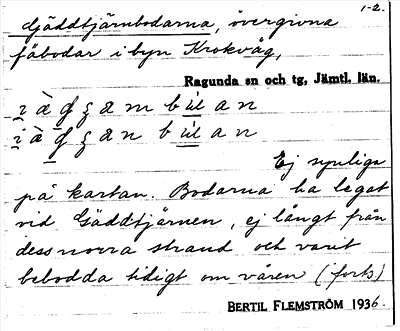 1-2.
Gäddtjärnbodarna, övergivna
fäbodar i byn Krokvåg,
Ragunda sn och tg, Jämtl. län.
Ej synliga
på kartan. Bodarna ha legat
vid Gäddtjärnen, ej långt från
dess norra strand och varit
bebodda tidigt om våren (forts)
BERTIL FLEMSTRÖM 1936.